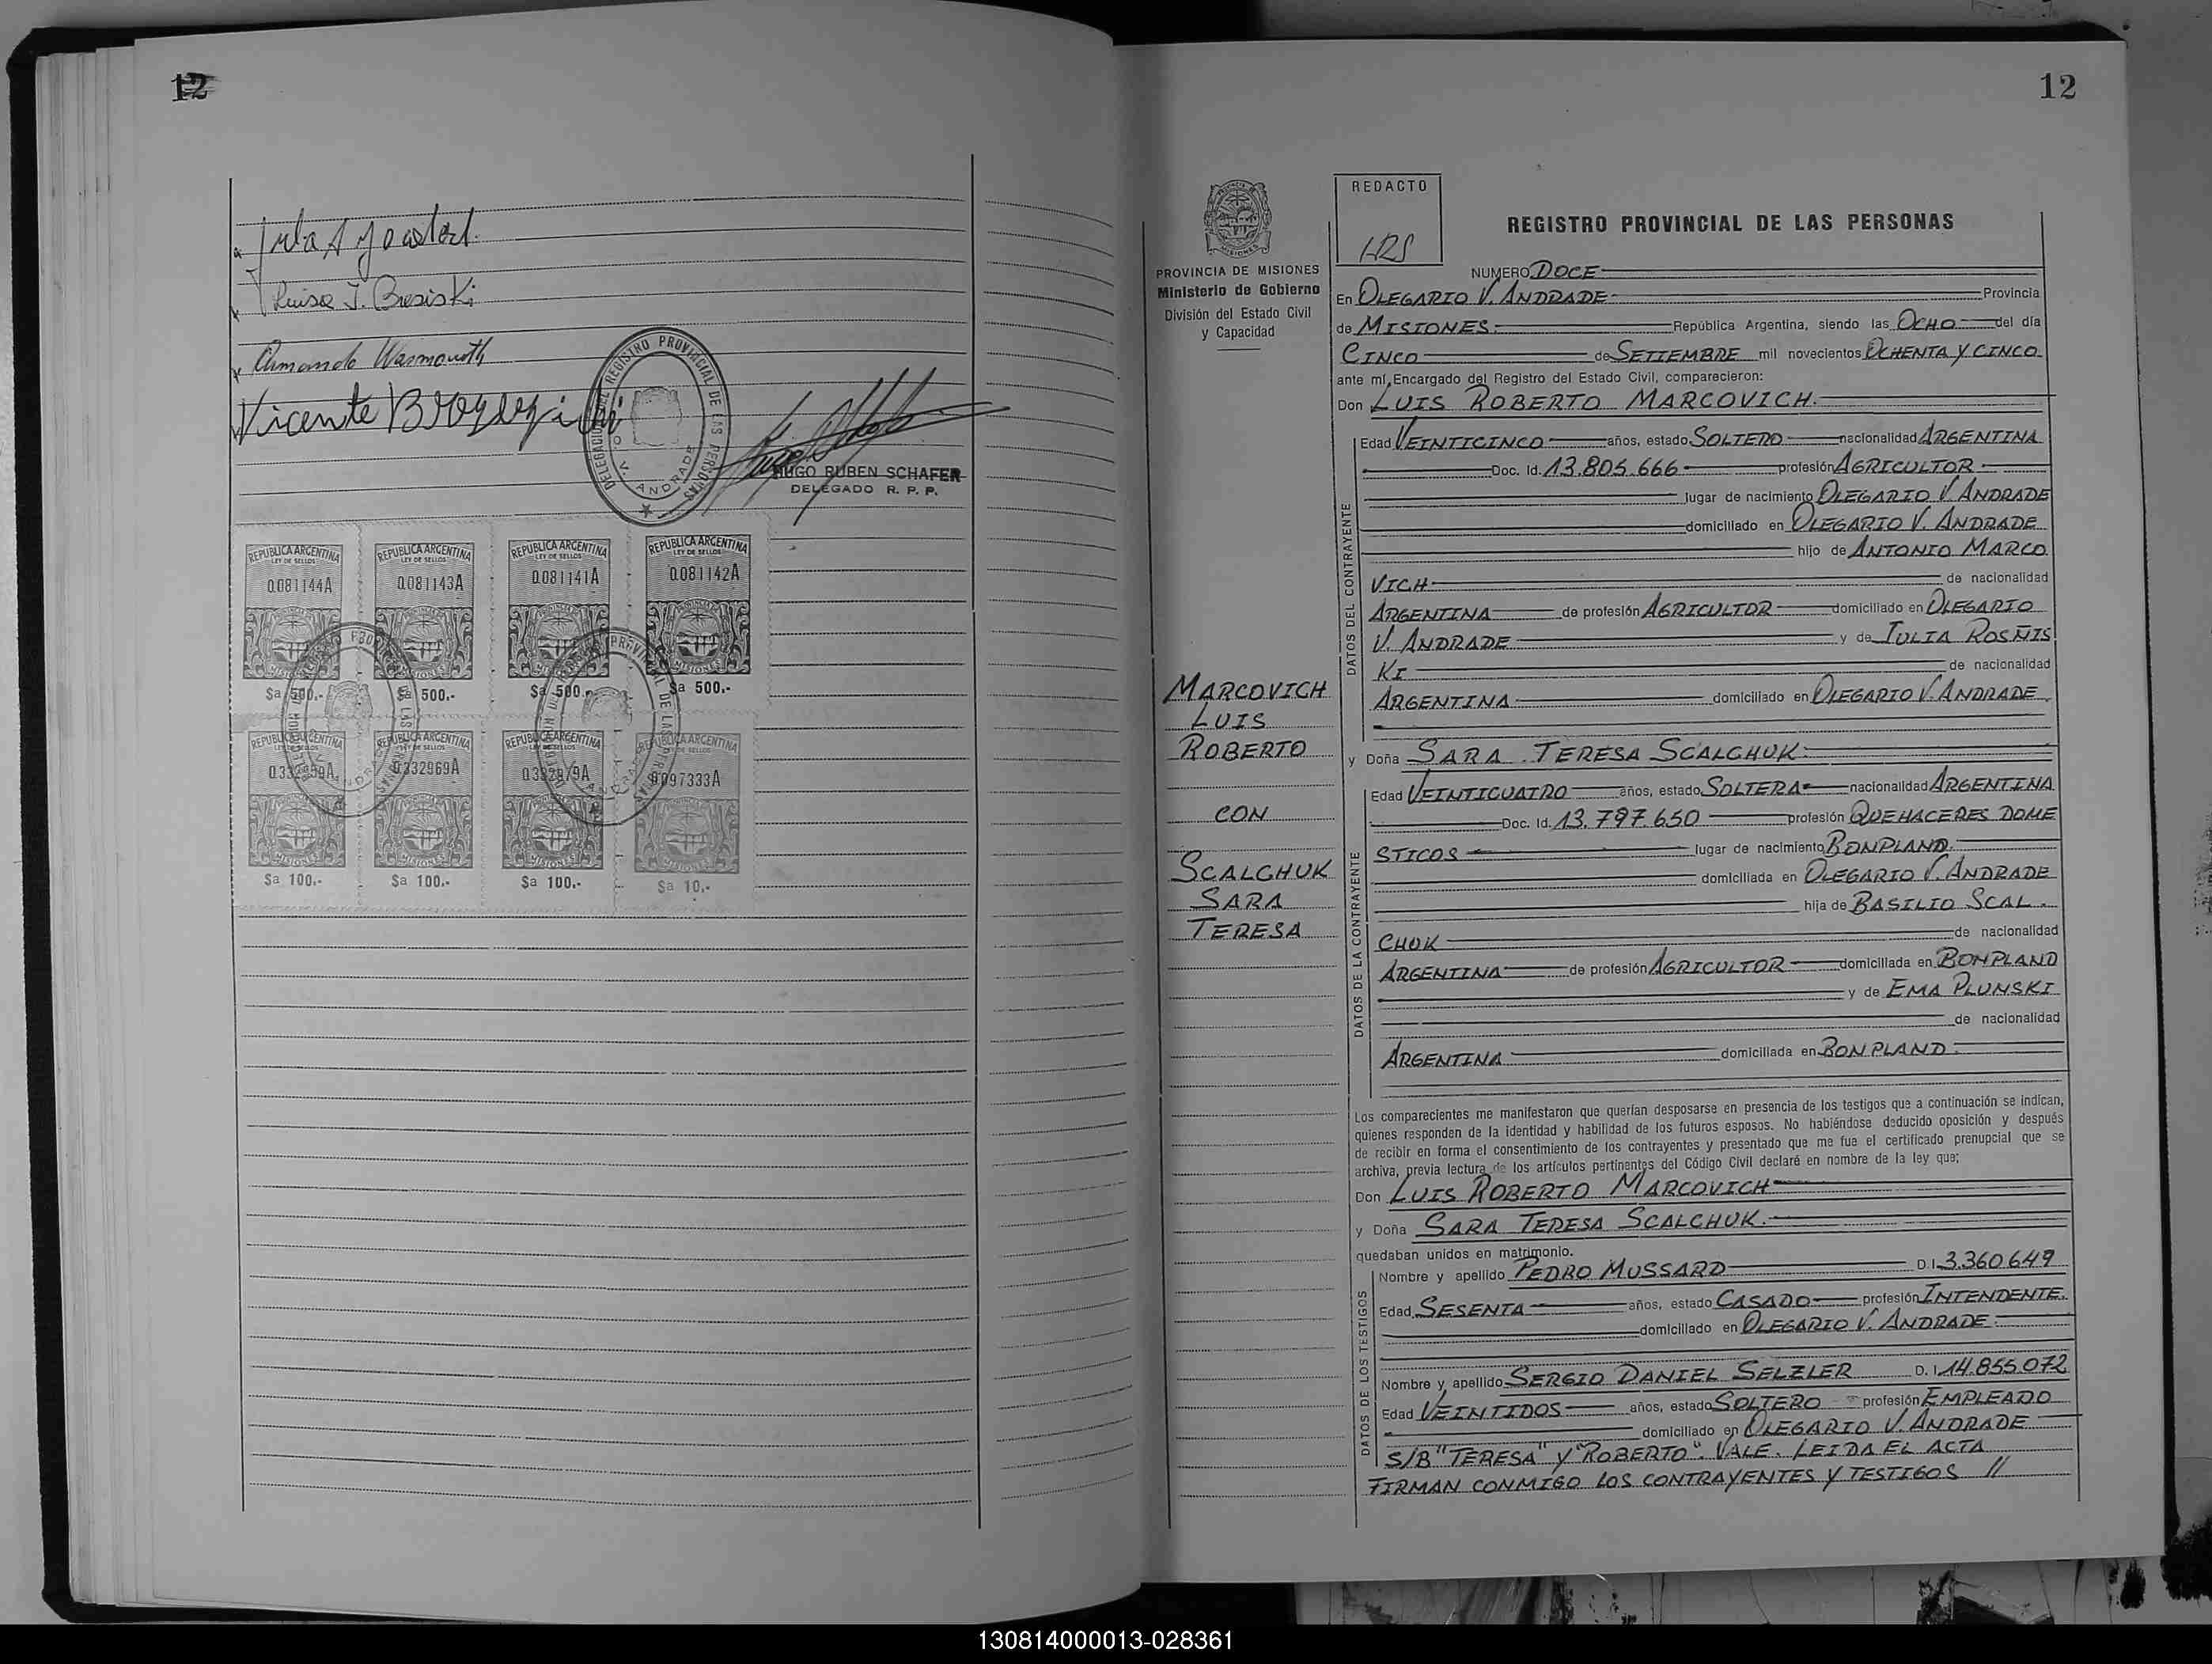 12
Luisa J. Bresiski
Armando Wasmouth
Vicente
DELEGACION DEL REGISTRO PROVINCIAL DE LAS PERSONAS
O V. ANDRADE
HUGO RUBEN SCHAFER
DELEGADO R. P. P.
REPUBLICA ARGENTINA REPUBLICA ARGENTINA REPUBLICA ARGENTINA REPUBLICA ARGENTINA
LEY DE SELLOS LEY DE SELLOS LEY DE SELLOS LEY DE SELLOS
0.081144A 0.081143A 0.081141A 0.081142A
MISIONES MISIONES MISIONES MISIONES
$a 500.- $a 500.- $a 500.- $a 500.-
REPUBLICA ARGENTINA REPUBLICA ARGENTINA REPUBLICA ARGENTINA REPUBLICA ARGENTINA
0.332969A 0.097333A
MISIONES MISIONES MISIONES MISIONES
$a 100.- $a 100.- $a 100.- $a 10.-
12
PROVINCIA DE MISIONES
Ministerio de Gobierno
División del Estado Civil
y Capacidad
MARCOVICH
LUIS
ROBERTO
CON
SCALCHUK
SARA
TERESA
REDACTO
HRS
REGISTRO PROVINCIAL DE LAS PERSONAS
NUMERO DOCE
En OLEGARIO V. ANDRADE Provincia
de MISIONES República Argentina, siendo las OCHO del día
CINCO de SETIEMBRE mil novecientos OCHENTA Y CINCO
ante mí, Encargado del Registro del Estado Civil, comparecieron:
Don LUIS ROBERTO MARCOVICH.
DATOS DEL CONTRAYENTE
Edad VEINTICINCO años, estado SOLTERO nacionalidad ARGENTINA
Doc. Id. 13.805.666 profesión AGRICULTOR
lugar de nacimiento OLEGARIO V. ANDRADE
domiciliado en OLEGARIO V. ANDRADE
hijo de ANTONIO MARCO
VICH de nacionalidad
ARGENTINA de profesión AGRICULTOR domiciliado en OLEGARIO
V. ANDRADE y de JULIA ROSÑIS
KI de nacionalidad
ARGENTINA domiciliado en OLEGARIO V. ANDRADE
y Doña SARA TERESA SCALCHUK
DATOS DE LA CONTRAYENTE
Edad VEINTICUATRO años, estado SOLTERA nacionalidad ARGENTINA
Doc. Id. 13.797.650 profesión QUEHACERES DOME
STICOS lugar de nacimiento BONPLAND.
domiciliada en OLEGARIO V. ANDRADE
hija de BASILIO SCAL
CHUK de nacionalidad
ARGENTINA de profesión AGRICULTOR domiciliada en BONPLAND
y de EMA PLUNSKI
de nacionalidad
ARGENTINA domiciliada en BONPLAND
Los comparecientes me manifestaron que querían desposarse en presencia de los testigos que a continuación se indican,
quienes responden de la identidad y habilidad de los futuros esposos. No habiéndose deducido oposición y después
de recibir en forma el consentimiento de los contrayentes y presentado que me fue el certificado prenupcial que se
archiva, previa lectura de los artículos pertinentes del Código Civil declaré en nombre de la ley que;
Don LUIS ROBERTO MARCOVICH
y Doña SARA TERESA SCALCHUK.
quedaban unidos en matrimonio.
DATOS DE LOS TESTIGOS
Nombre y apellido PEDRO MUSSARD D.I. 3.360.649
Edad SESENTA años, estado CASADO profesión INTENDENTE.
domiciliado en OLEGARIO V. ANDRADE
Nombre y apellido SERGIO DANIEL SELZLER D. I. 14.855.072
Edad VEINTIDOS años, estado SOLTERO profesión EMPLEADO
domiciliado en OLEGARIO V. ANDRADE
S/B "TERESA" Y "ROBERTO". VALE. LEIDA EL ACTA
FIRMAN CONMIGO LOS CONTRAYENTES Y TESTIGOS //
130814000013-028361